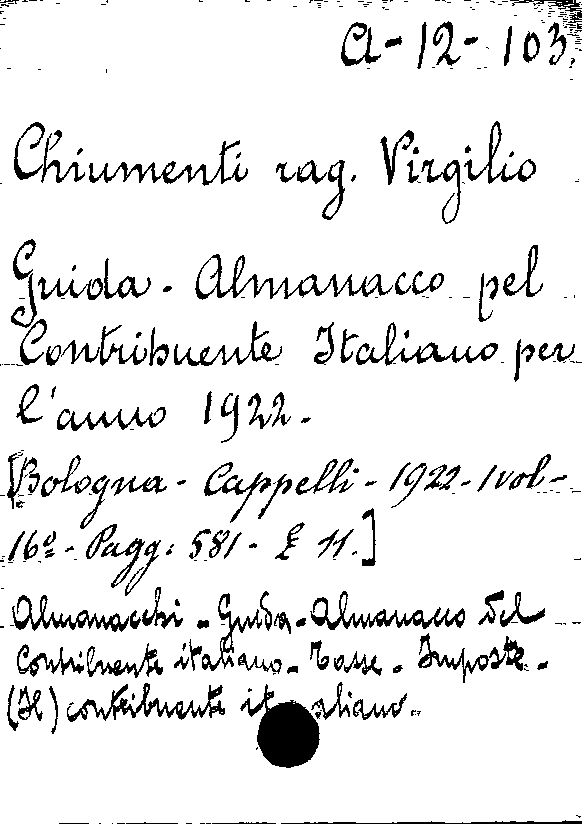 A-12-103.
Chiumenti rag. Virgilio
Guida - Almanacco pel
Contribuente Italiano per
l'anno 1922.
[Bologna - Cappelli - 1922 - 1 vol -
16º - Pagg. 581 - £ 11.]
Almanacchi - Guida - Almanacco del
Contribuente italiano - Tasse - Imposte -
(Il) contribuente italiano.